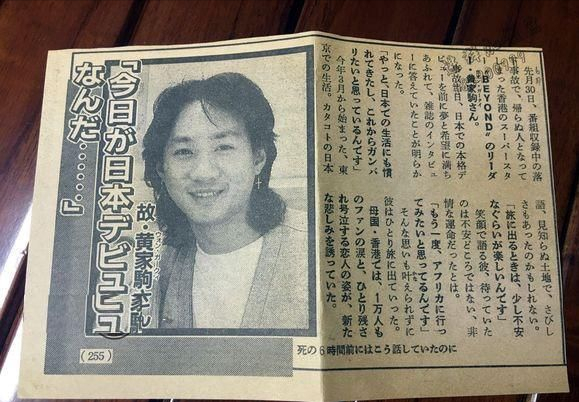 先月30日、番組収録中の落
下事故で、帰らぬ人となって
しまった香港のスーパースタ
ー"BEYOND"のリーダ
ー・黄家駒さん。
事故当日、日本での本格デ
ビューを前に夢と希望に満ち
あふれて、雑誌のインタビュ
ーに答えていたことが明らか
になった。
「やっと、日本での生活にも慣
れてきたし、これからガンバ
りたいと思っているんです」
今年3月から始まった、東
京での生活。カタコトの日本
語、見知らぬ土地で、さびし
さもあったのかもしれない。
「旅に出るときは、少し不安
なぐらいが楽しいんです」
笑顔で語る彼、待っていた
のは不安どころではない、非
情な運命だったとは。
「もう一度、アフリカに行っ
てみたいと思ってるんです」
そんな思いも叶えられずに
彼はひとり旅に出ていった。
母国・香港では、1万人も
のファンの涙と、ひとり残さ
れ号泣する恋人の姿が、新た
な悲しみを誘っていた。
死の6時間前にはこう話していたのに
故・黄家駒
「今日が日本デビュー
なんだ……」
(255)